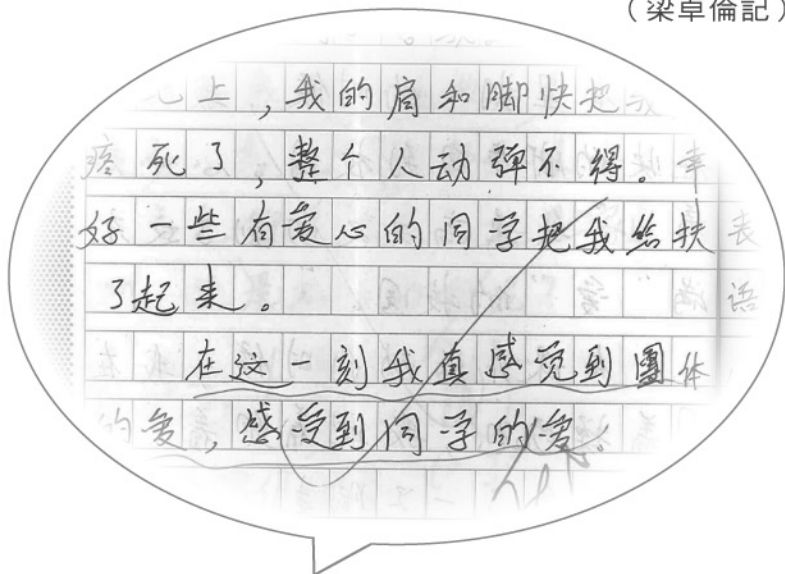 （梁卓倫記）
上，我的肩和脚快把我
疼死了，整个人动弹不得。幸
好一些有爱心的同学把我给扶
了起来。
在这一刻我真感觉到團体
的爱，感受到同学的爱。